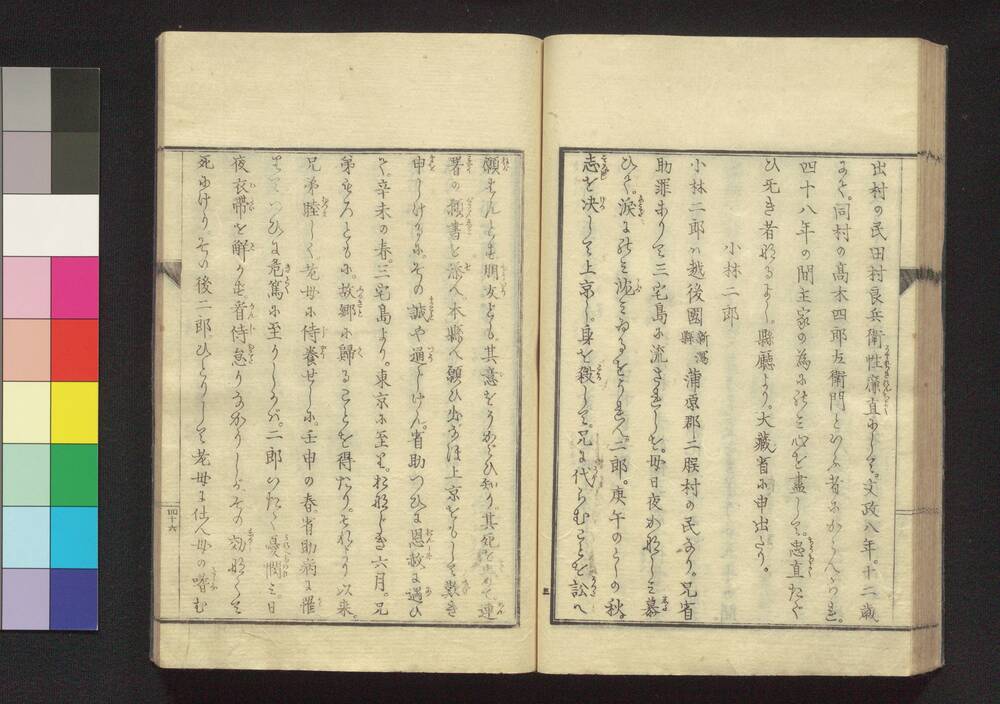 出村の民田村良兵衛性廉直にして文政八年十二歳
にて同村の高木四郎左衛門といふ者にかゝへられ
四十八年の間主家の為にのみ心を盡して忠直たぐ
ひ无き者なるよし縣廳より大藏省に申出たり
小林二郎
小林二郎ハ越後國新潟縣蒲原郡二股村の民なり兄省
助罪ありて三宅島に流されしを母日夜かなしミ慕
ひて涙にのミ沈ミゐるをうれへ二郎庚午のとしの秋
志を决して上京し身を殺して兄に代らむことを訟へ
願はんとす朋友ども其意をうかゞひ知り其死を止めて連
署の願書を添へ本縣へ願ひ出なほ上京をもして歎き
申しけるにその誠や通じけん省助つひに恩赦に遇ひ
て辛未の春三宅島より東京に至りおなじき六月兄
弟もろともに故郷に歸ることを得たりそれより以来
兄弟睦しく老母に侍養せしに壬申の春省助病に罹
つひに危篤に至りしかバ二郎いたく憂悶ミ日
夜衣帶を解かず看侍怠りなかりしかどその効なくして
死ゆけりその後二郎ひとりして老母に仕へ母の嗜む
四十六